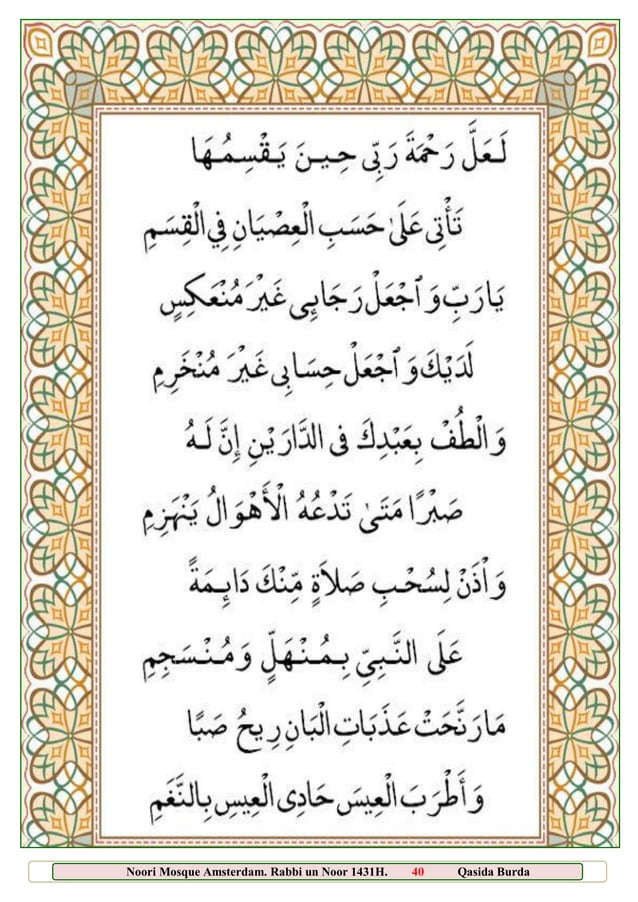 لَعَلَّ رَحْمَةَ رَبِّى حِينَ يَقْسِمُهَا
تَأْتِى عَلَىٰ حَسَبِ الْعِصْيَانِ فِي الْقِسَمِ
يَارَبِّ وَ ٱجْعَلْ رَجَائِى غَيْرَ مُنْعَكِسٍ
لَدَيْكَ وَ ٱجْعَلْ حِسَابِى غَيْرَ مُنْخَرِمِ
وَ الْطُفْ بِعَبْدِكَ فى الدَّارَيْنِ إِنَّ لَهُ
صَبْرًا مَتَىٰ تَدْعُهُ الْأَهْوَالُ يَنْهَزِمِ
وَ اْذَنْ لِسُحْبِ صَلاَةٍ مِّنْكَ دَائِمَةً
عَلَى النَّبِيِّ بِمُنْهَلٍّ وَمُنْسَجِمِ
مَارَنَّحَتْ عَذَبَاتِ الْبَانِ رِيحُ صَبًا
وَ أَطْرَبَ الْعِيسَ حَادِى الْعِيسِ بِالنَّغَمِ
Noori Mosque Amsterdam. Rabbi un Noor 1431H. 40 Qasida Burda